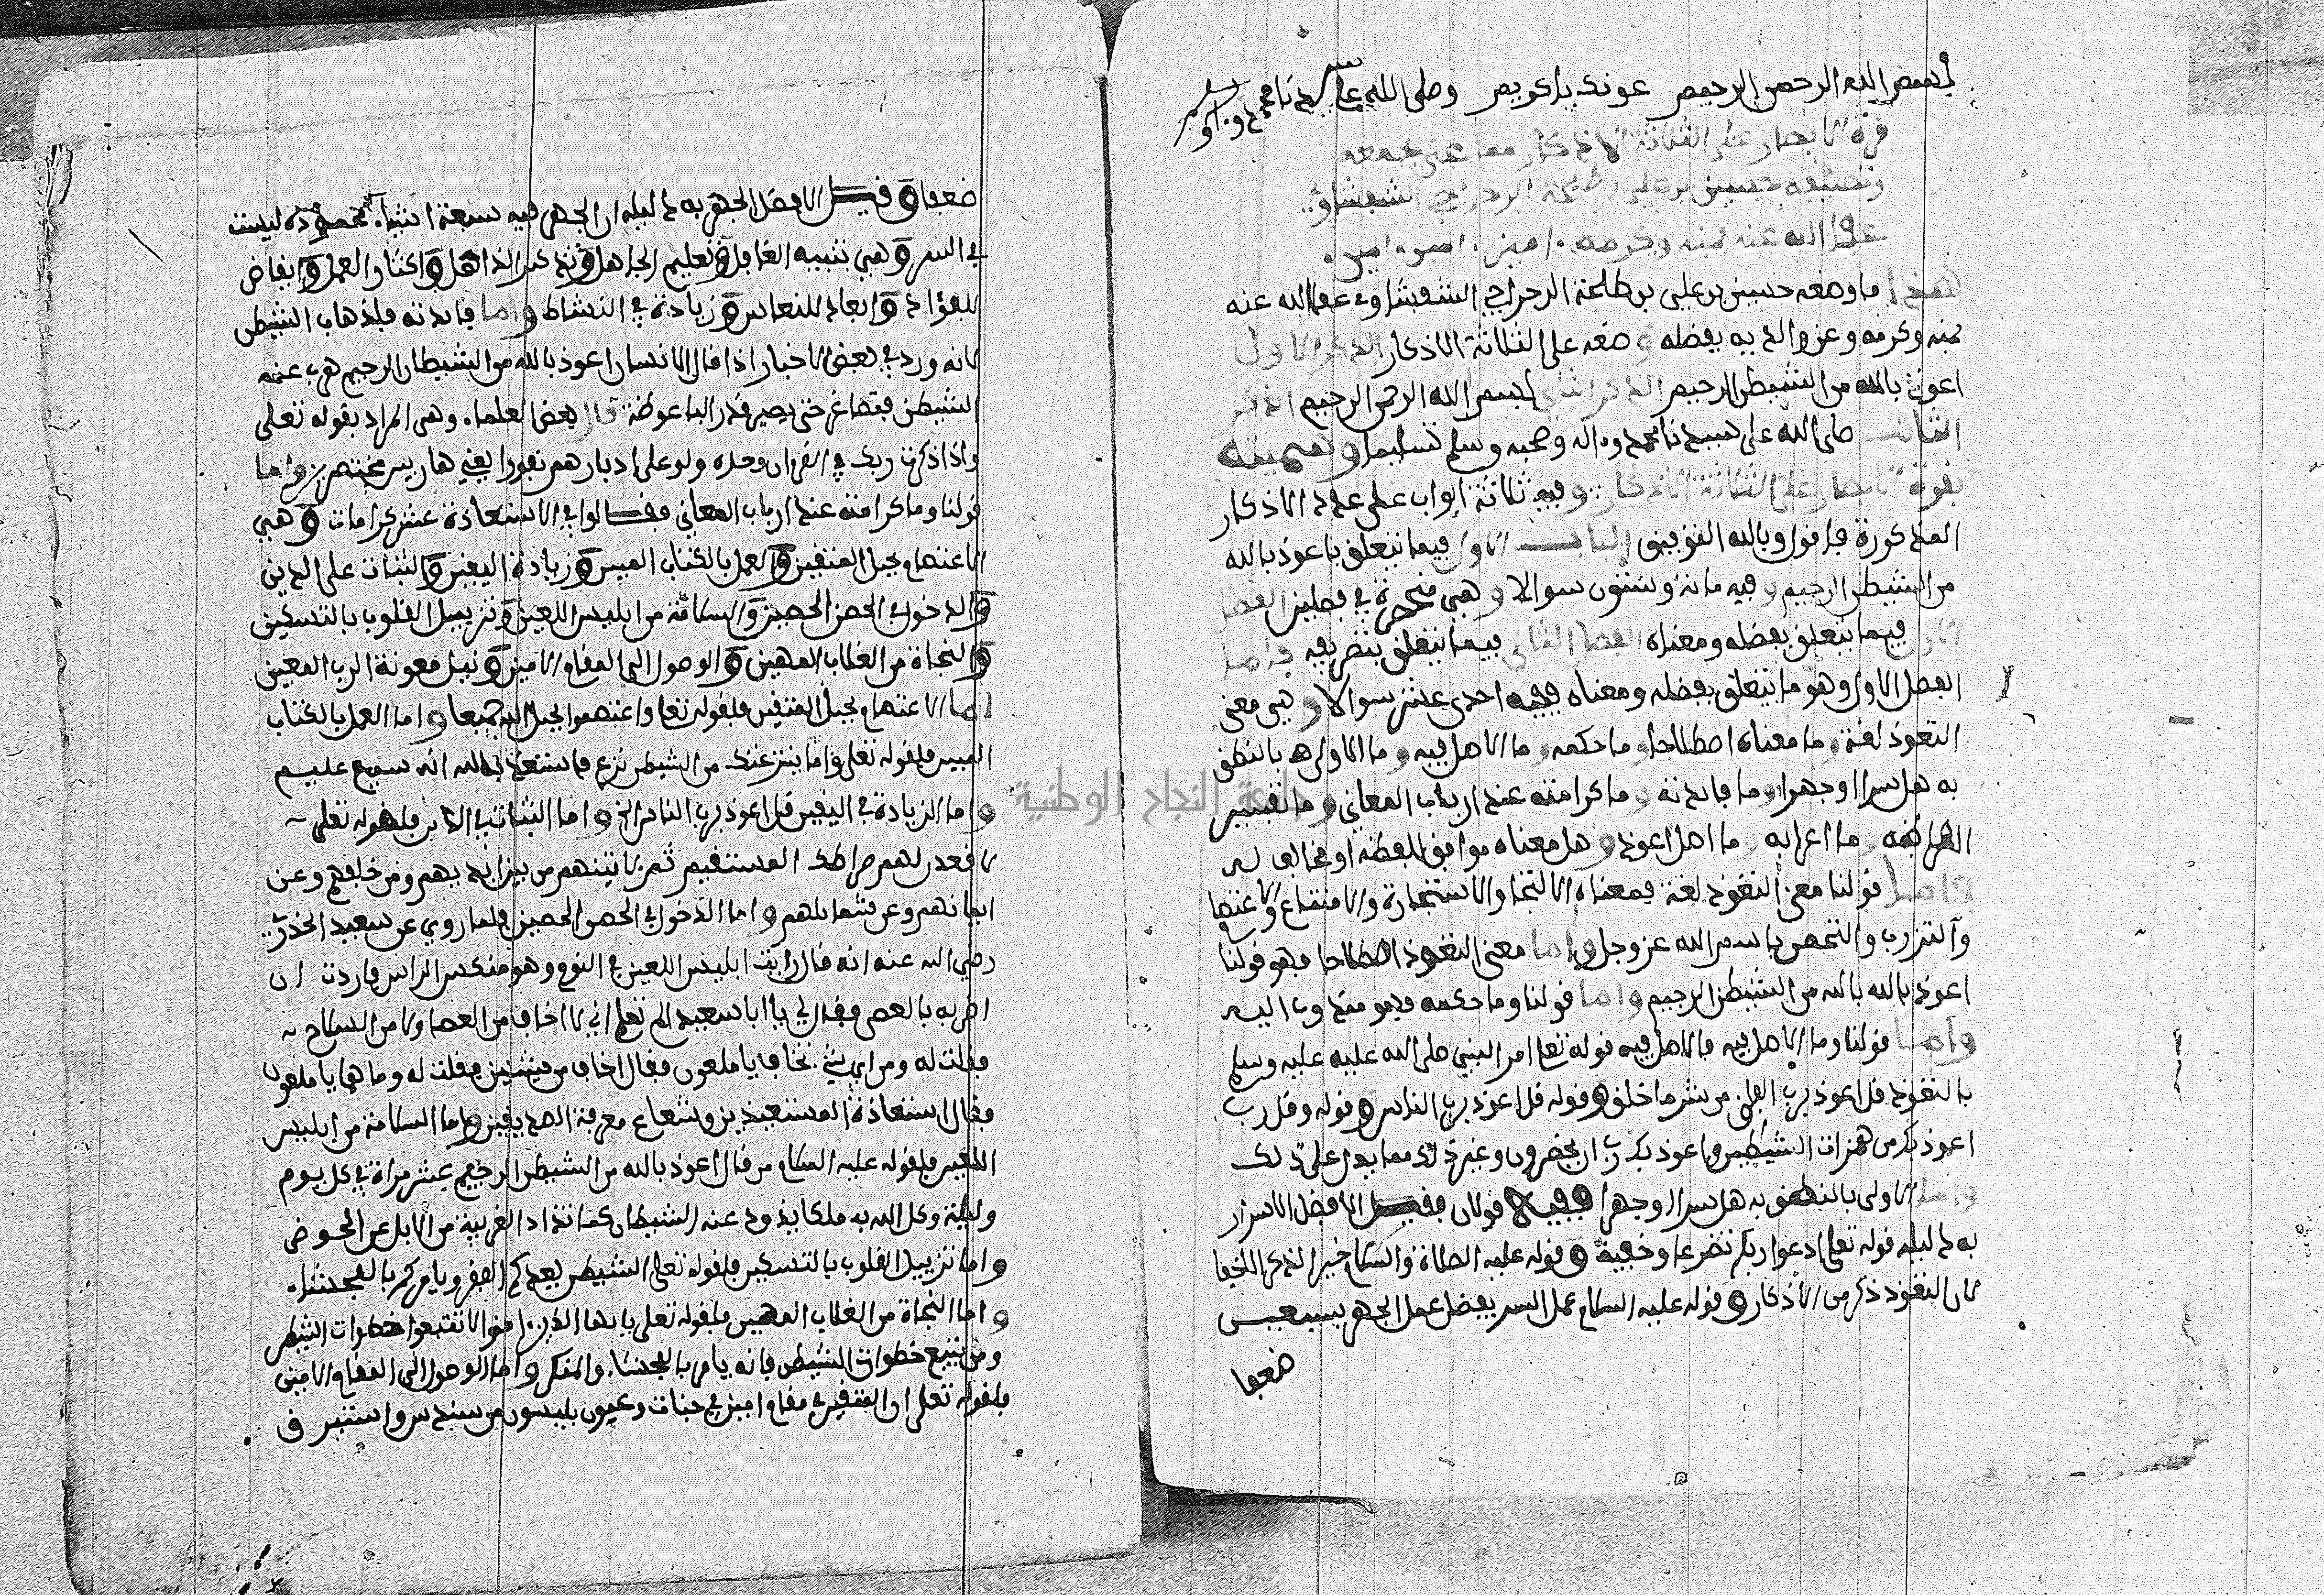 بسم الله الرحمن الرحيم عونك يا كريم وصلى الله على سيدنا محمد وآله
قرة الابصار على الثلاثة الاذكار مما عنى بجمعه
وتصنيفه حسين بن علي بن طلحة الرجراجي الشوشاوي
عفا الله عنه بمنه وكرمه ءامين امين امين
هذا ما وضعه حسين بن علي بن طلحة الرجراجي الشوشاوي عفا الله عنه
بمنه وكرمه وعن والديه بفضله وضعه على الثلاثة الاذكار الذكر الاول
اعوذ بالله من الشيطن الرجيم الذكر الثاني بسم الله الرحمن الرحيم الذكر
الثالث صلى الله على سيدنا محمد وءاله وصحبه وسلم تسليما وسميته
بقرة الابصار على الثلاثة الاذكار وفيه ثلاثة ابواب على عدد الاذكار
المذكورة فاقول وبالله التوفيق الباب الاول فيما يتعلق باعوذ بالله
من الشيطن الرجيم وفيه سوالا وهي منحصرة في فصلين الفصل
الاول فيما يتعلق بفضله ومعناه الفصل الثاني فيما يتعلق بتصريفه فاما
الفصل الاول وهو ما يتعلق بفضله ومعناه ففيه احدى عشر سوالا وهي معنى
التعوذ لغة وما معناه اصطلاحا وما حكمه وما الاصل فيه وما الاولى هـ بالنطق
به هل سرا او جهرا وما فايدته وما كرامته عند ارباب المعاني وما تفسير
وما اعرابه وما اصل اعوذ وهل معناه موافق للفظه او مخالف له
واما قولنا معنى التعوذ لغة فمعناه الالتجا والاستجارة والامتناع والاعتصا
والتحصن باسم الله عز وجل واما معنى التعوذ اصطلاحا فهو قولنا
اعوذ بالله بالله من الشيطن الرجيم واما قولنا وما حكمه فهو مندوب اليه
واما قولنا وما الاصل فيه فالاصل فيه قوله تعلى امر النبي صلى الله عليه عليه وسلم
بالتعوذ قل اعوذ برب الفلق من شر ما خلق وقوله قل اعوذ برب الناس وقوله وقل رب
اعوذ بك من همزات الشيطين واعوذ بك رب ان يحضرون وغير ذلك مما يدل على ذلك
واما الاولى بالنطق به هل سرا او جهرا ففيه قولان فقيل الافضل الاسرار
به دليله قوله تعلى ادعوا ربكم تضرعا وخفية وقوله عليه الصلاة والسلام خير الذكر الخفيا
لان التعوذ ذكر من الاذكار وقوله عليه السلام عمل السر يفضل عمل الجهر بسبعين
ضعفا
ضعفا وقيل الافضل الجهر به دليله ان الجهر فيه سبعة اشياء محمودة ليست
في السر وهي تنبيه الغافل وتعليم الجاهل وتذكير الذاهل واكثار العمل وايقاض
للفؤاد وابعاد للنعاس وزيادة في النشاط واما فايدته فلذهاب الشيطن
لانه ورد في بعض الاخبار اذا قال الانسان اعوذ بالله من الشيطان الرجيم هرب عنه
الشيطن فيصاغر حتى يصير قدر الباعوظة قال بعض العلماء وهي المراد بقوله تعلى
واذا ذكرت ربك في القرءان وحده ولوا على ادبارهم نفورا يعني هاربين واما
قولنا وما كرامته عند ارباب المعاني فقالوا في الاستعاذة عشر كرامات وهي
الاعتصام بحبل المتقين والعمل بالكتاب المبين وزيادة اليقين والثبات على الدين
والدخول في الحصن الحصين والسلامة من ابليس اللعين وتزييل القلوب بالتسكين
والنجاة من العذاب المهين والوصول الى المقام الامين ونيل معونة الرب المعين
اما الاعتصام بحبل المتقين فلقوله تعلى واعتصموا بحبل الله جميعا واما العمل بالكتاب
المبين فلقوله تعلى واما ينزغنك من الشيطن نزغ فاستعذ بالله انه سميع عليم
واما الزيادة في اليقين قل اعوذ برب الناس الخ واما الثبات في الدين فلقوله تعلى
لاقعدن لهم صراطك المستقيم ثم لاتينهم من بين ايديهم ومن خلفهم وعن
ايمانهم وعن شمائلهم واما الدخول في الحصن الحصين فلما روي عن سعيد الخذري
رضي الله عنه انه قال رايت ابليس اللعين في النوم وهو منكس الراس فاردت ان
اضربه بالعصى فقال لي يا ابا سعيد الم تعلم اني لا اخاف من العصا ولا من السلاح
فقلت له ومن اي شيء تخاف يا ملعون فقال اخاف من شيئين فقلت له وما هما يا ملعون
فقال استعاذة المستعيذين وشعاع معرفة الصديقين واما السلامة من ابليس
اللعين فلقوله عليه السلام من قال اعوذ بالله من الشيطن الرجيم عشر مراة في كل يوم
وليلة وكل الله به ملكا يذود عنه الشيطان كما تذاد الغريبة من الابل عن الحوض
واما تزييل القلوب بالتسكين فلقوله تعلى الشيطن يعدكم الفقر ويامركم بالفحشاء
واما النجاة من العذاب المهين فلقوله تعلى يايها الذين ءامنوا لا تتبعوا خطوات الشيطن
ومن يتبع خطوات الشيطن فانه يامر بالفحشاء والمنكر واما الوصول الى المقام الامين
فلقوله تعلى ان المتقين في مقام امين في جنات وعيون يلبسون من سندس واستبرق
جامعة النجاح الوطنية